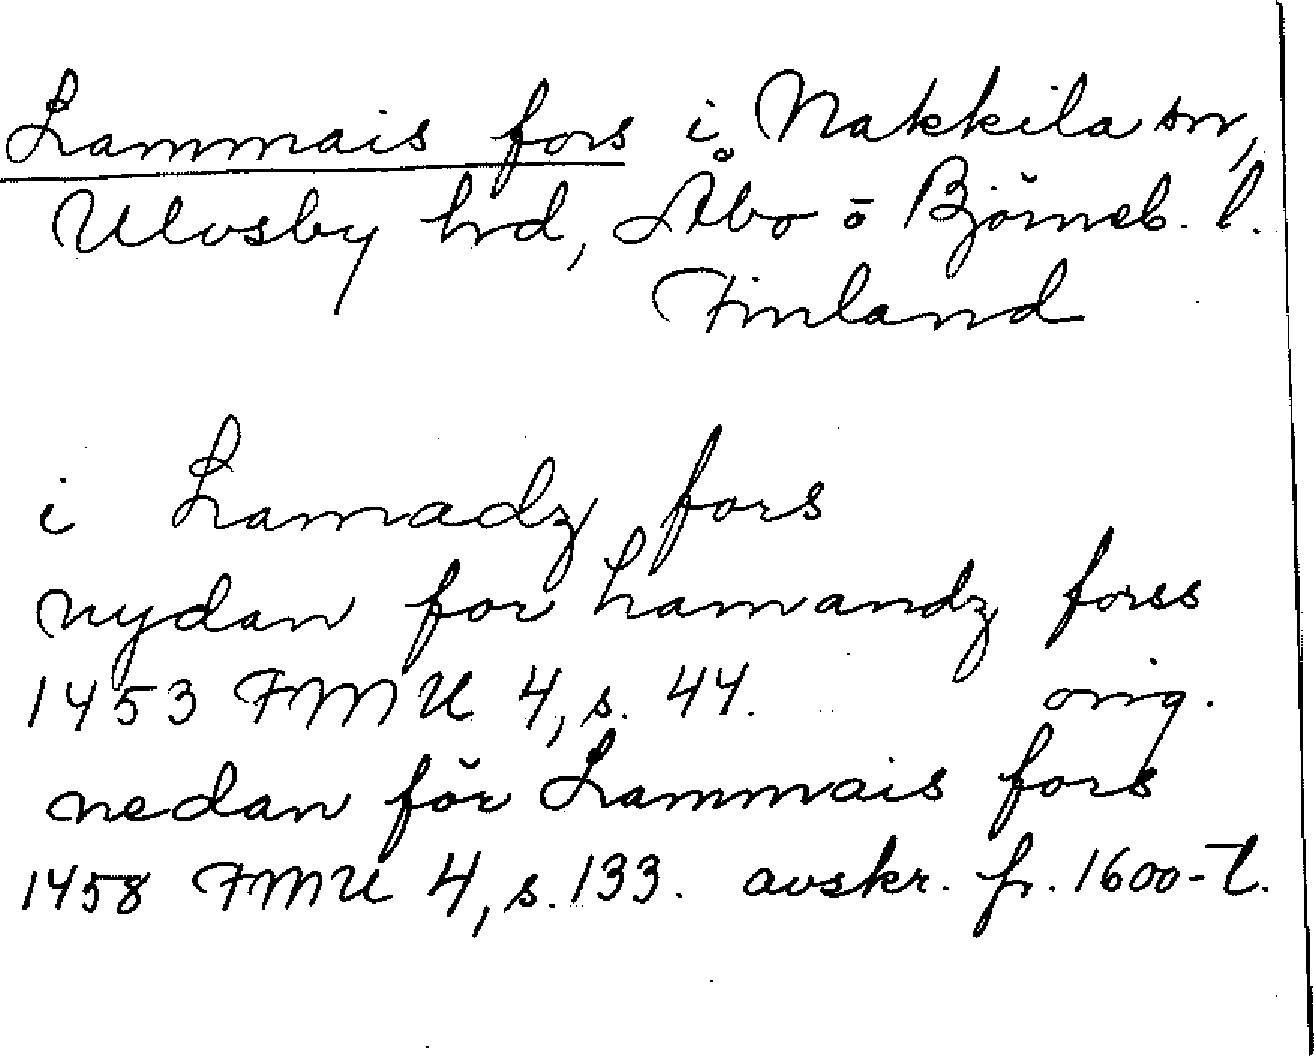 Lammais fors i Nakkila sn,
Ulvsby hrd, Åbo o Björneb. l.
Finland
i Lamadz fors
nydan for hamandz forss
1453 FMU 4, s. 44. orig.
nedan för Lammais fors
1458 FMU 4, s. 133. avskr. fr. 1600-t.